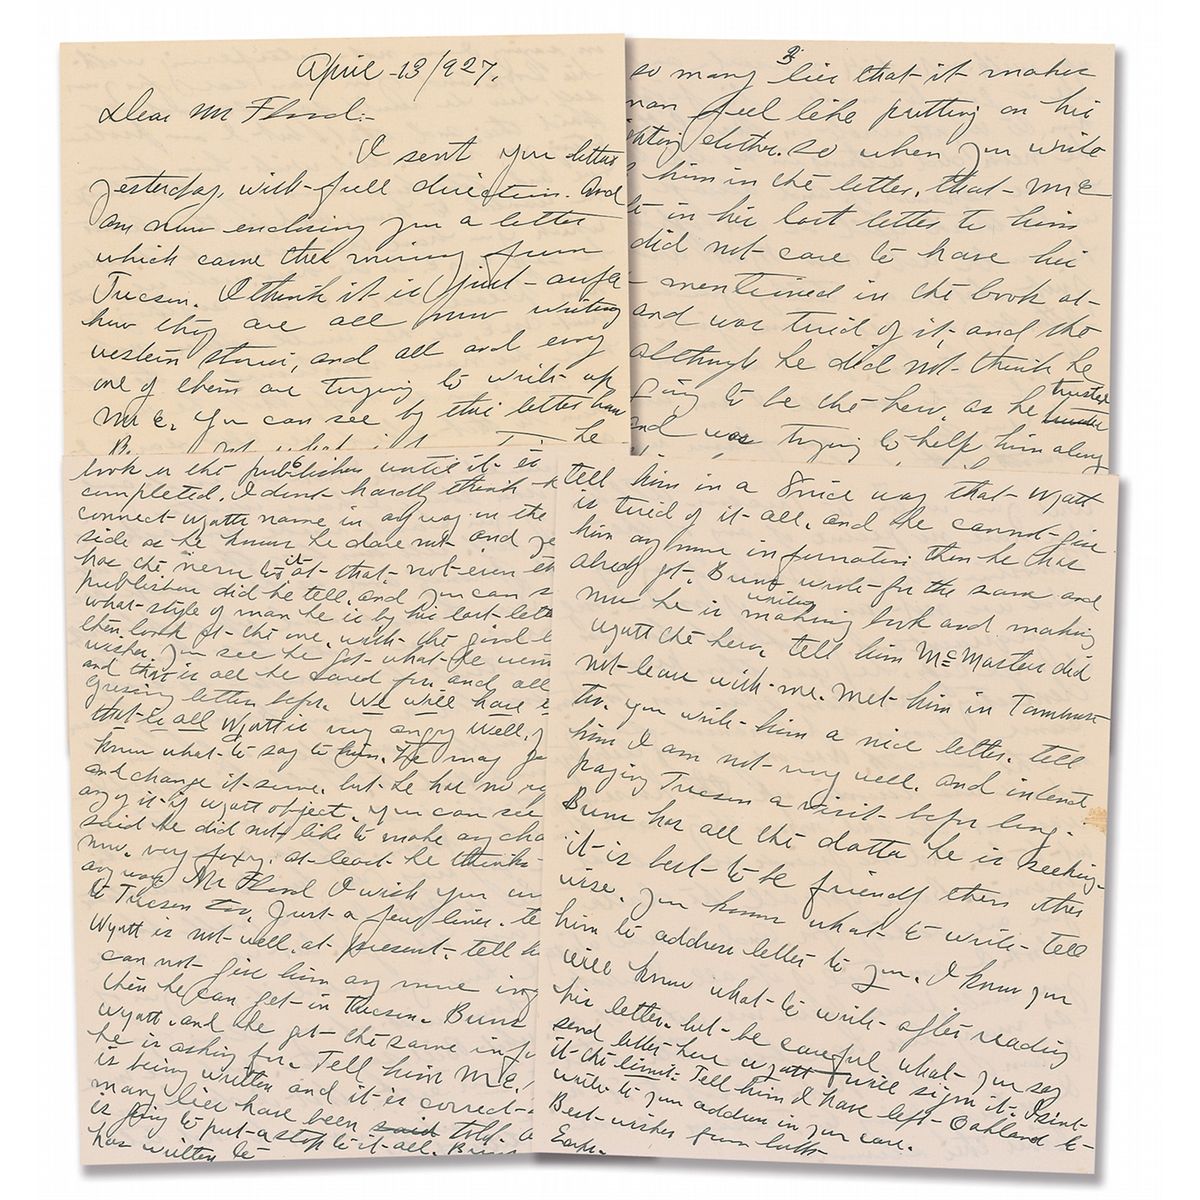 April-13/927.
Dear Mr Flood:-
I sent you letter
yesterday, with-full direction. And
am now enclosing you a letter
which came this morning from
Tucson. I think it is just-awful
how they are all now writing
western stories, and all and every
one of them are trying to write-up
Mr E. You can see by this letter how
he
3
so many lies that-it-makes
man feel like putting on his
clothes. so when you write
him in the letter. that-Mr E
in his last letter to him
did not-care to have his
mentioned in the book at-
and was tired of it, and the
although he did not-think he
going to be the hero, as he trusted
and was trying to help him along
6
book or the publisher until it is
completed. I dont-hardly think
connect-wyatts name in anyway in the
side as he knows he dare not-and
has the nerve to it at-that-not-even
publisher did he tell. and you can
what-style of man he is by his last-letter
then look at-the one. with-the
wishes, you see he got-what-he
and that-is all he cared for and all
letter before. We will have
that-is all Wyatt is very angry Well,
know what-to say to him. He may
and change it-some. but-he has no
any of it-if wyatt object. you can see
said he did not-like to make any
now. very foxy. at-least-he thinks
anyway Mr Flood I wish you
to Tucson too. Just-a few lines.
Wyatt is not-well. at-present-tell
can not-give him any more
then he can get-in Tucson. Burns
wyatt. and he got-the same
he is asking for. Tell him Mr E,
is being written and it-is correct-
many lies have been said told.
is going to put-a stop to it-all. Burns
has written to
8
tell him in a nice way that-Wyatt
is tired of it-all. and he cannot-give
him any more information then he has
already got. Burns wrote-for the same and
now he is making writing book and making
wyatt the hero. tell him McMasters did
not-leave with-me. Met-him in Tombstone
too. you write-him a nice letter. tell
him I am not-very well. and intend
paying Tucson a visit-before long-
Burns has all the datta he is seeking-
it-is best-to be friendly then other
wise. you know what-to write-tell
him to address letter to you. I know you
will know what-to write-after reading
his letter. but-be careful what-you say
send letter here wyatt will sign it-
it-the limit: Tell him I have left-Oakland to-
write-to your address in your care.
Best-wishes from both-
Earps.